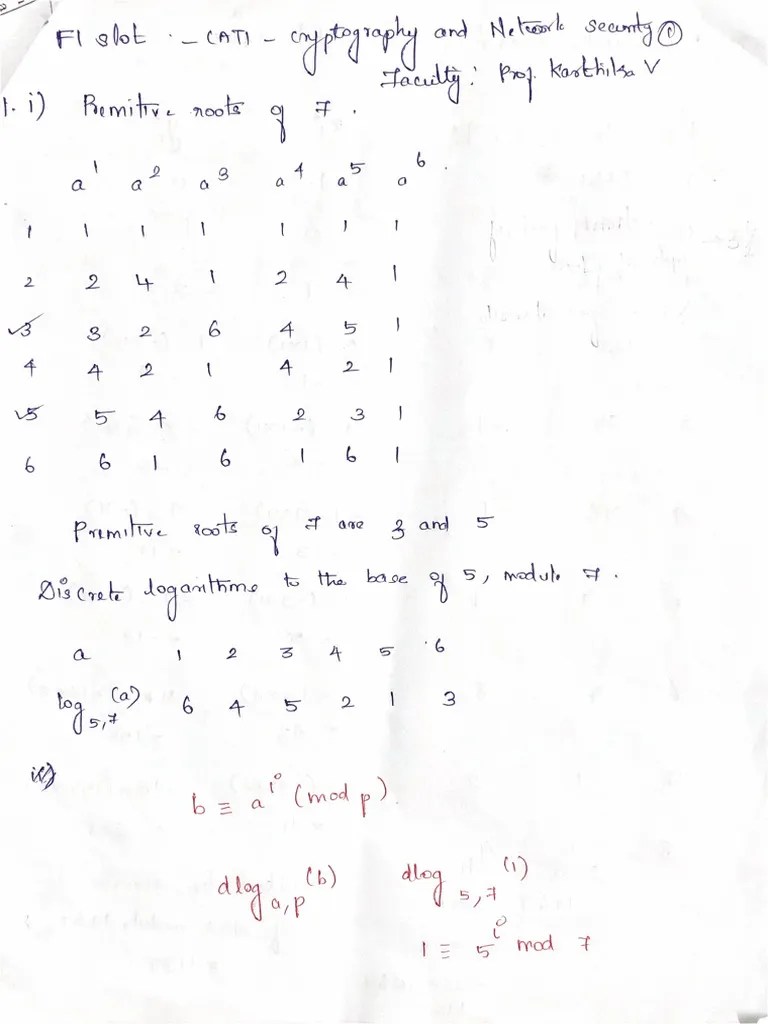 F1 slot. - CAT1 - Cryptography and Network security ①
Faculty: Prof. Karthika V
1. i) Premitive roots of 7.
a¹ a² a³ a⁴ a⁵ a⁶
1 1 1 1 1 1 1
2 2 4 1 2 4 1
✓3 3 2 6 4 5 1
4 4 2 1 4 2 1
✓5 5 4 6 2 3 1
6 6 1 6 1 6 1
Premitive roots of 7 are 3 and 5
Discrete logarithms to the base of 5, modulo 7.
a 1 2 3 4 5 6
log₅,₇(a) 6 4 5 2 1 3
b ≡ aⁱ (mod p).
dlog a,p (b) dlog 5,7 (1)
1 ≡ 5ⁱ mod 7